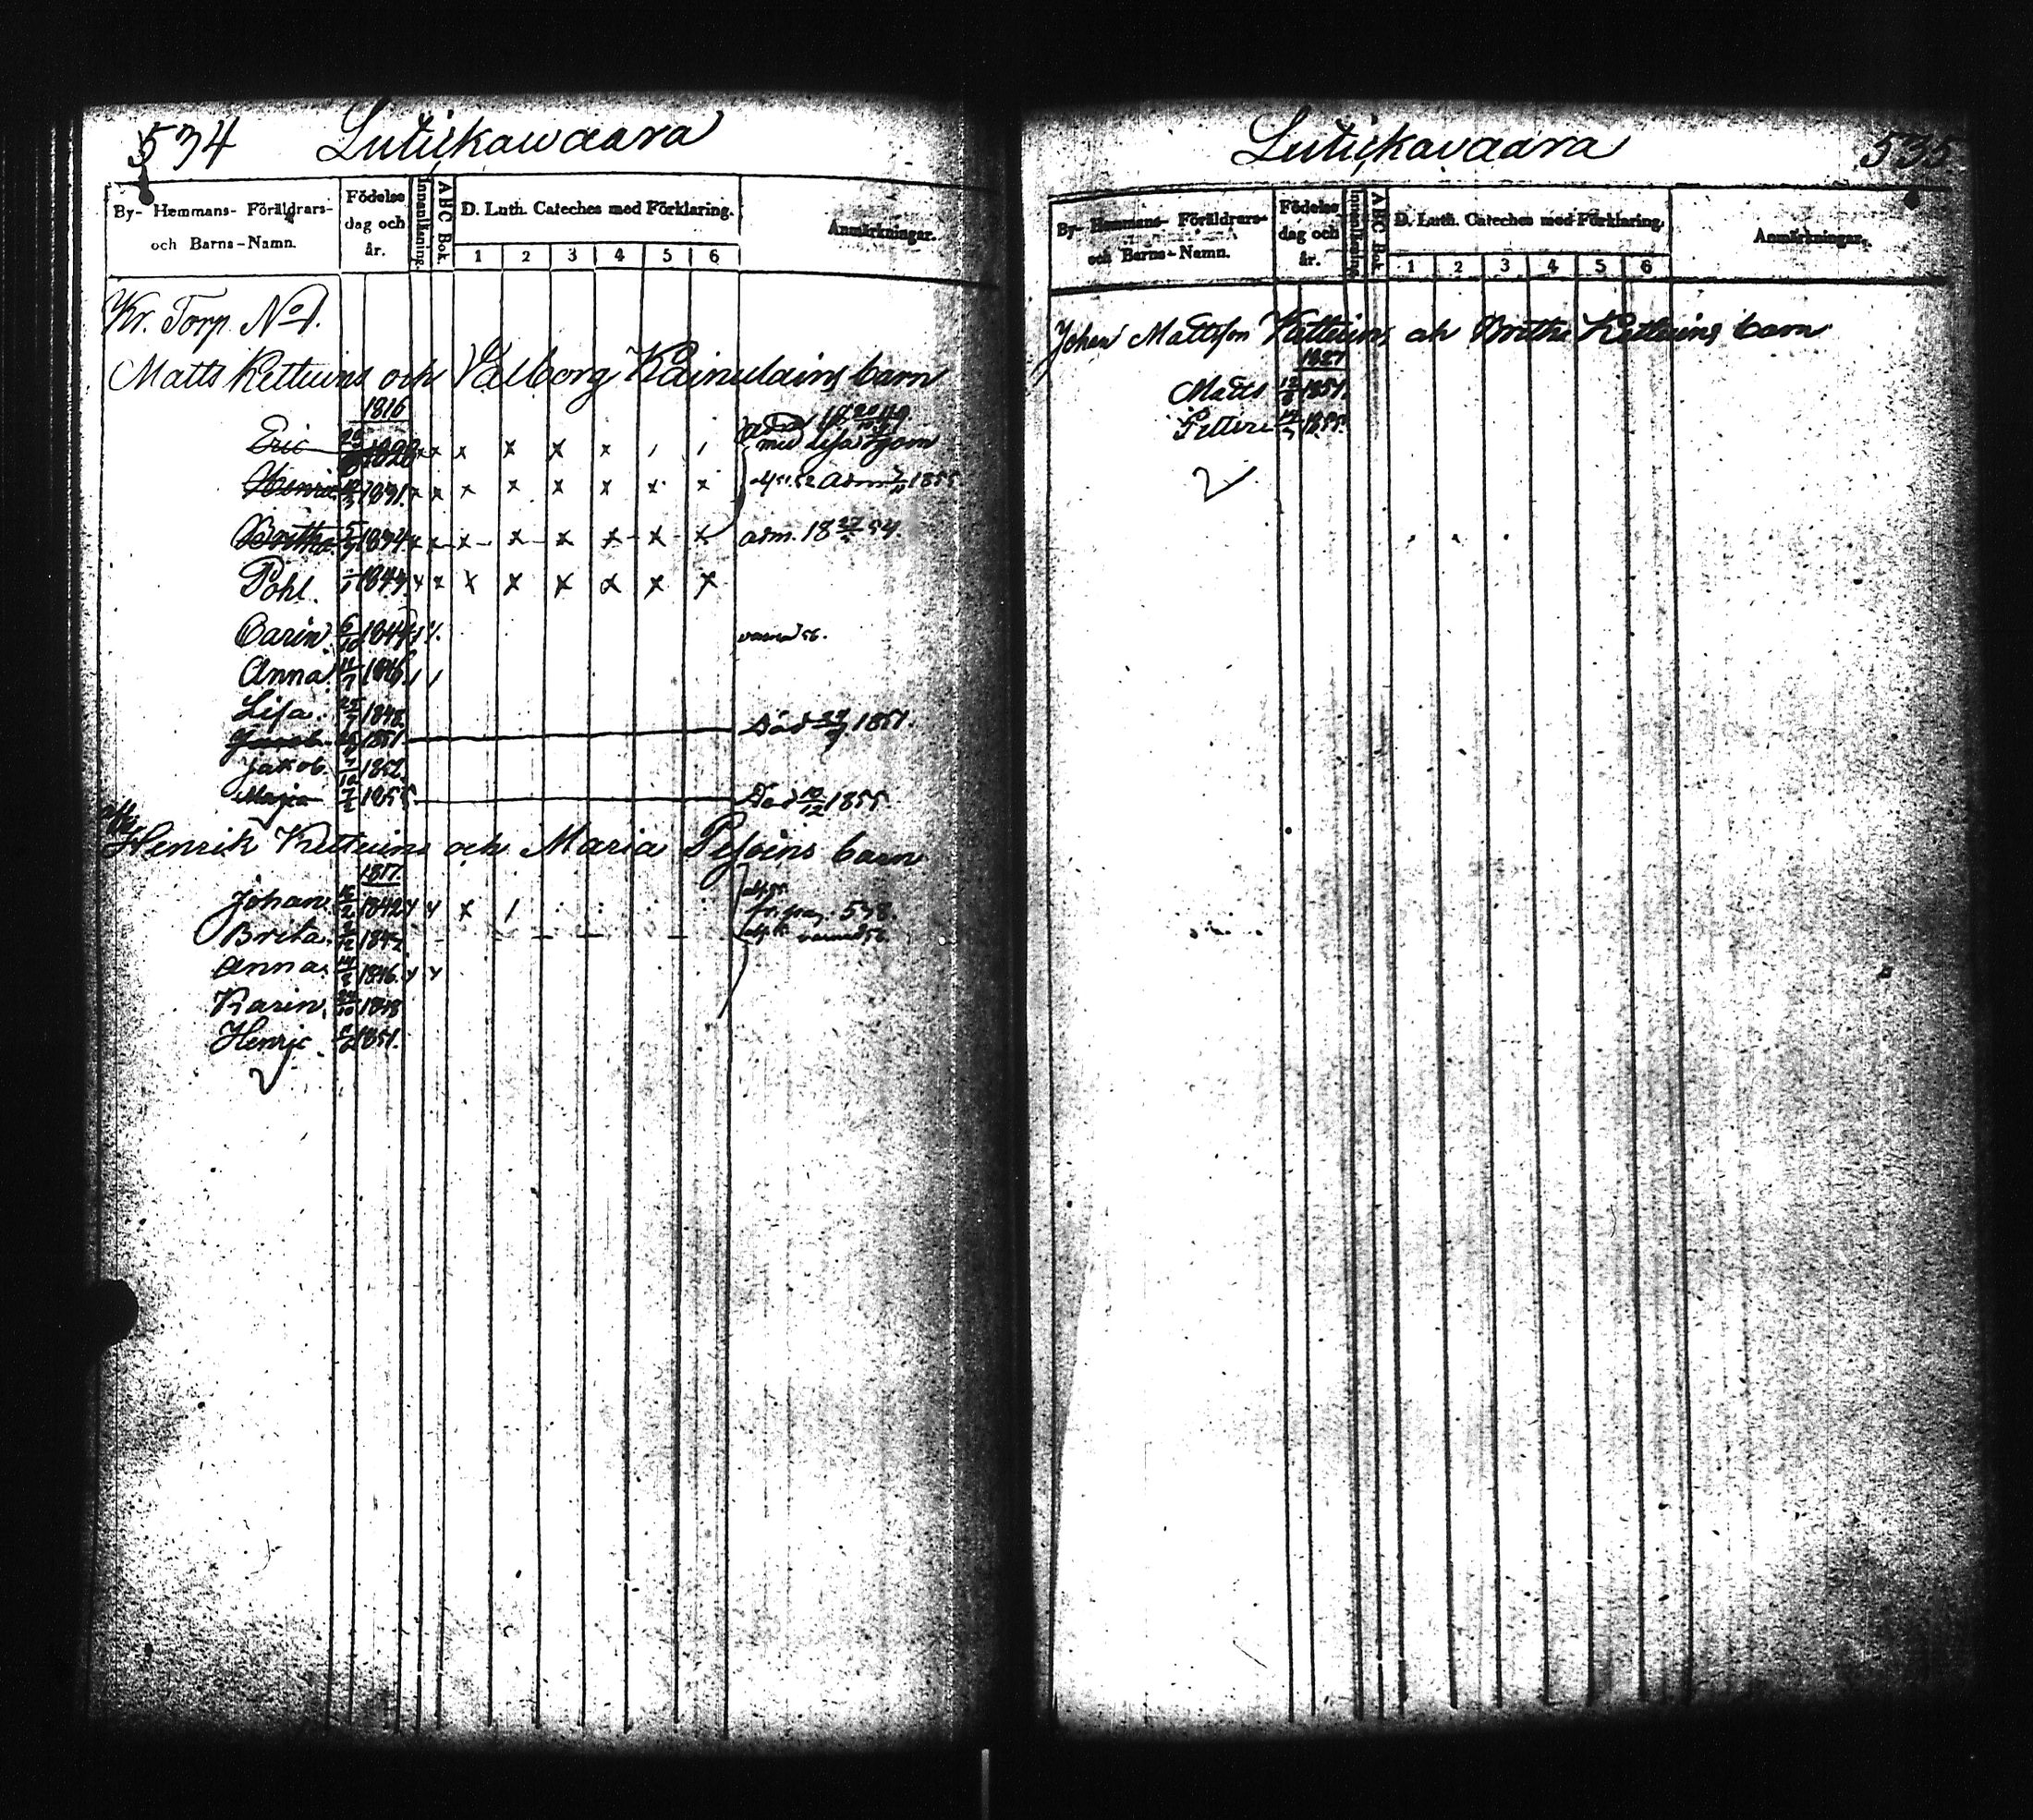 534 Lutickawaara
By- Hemmans- Föräldrars-
och Barns-Namn.
Födelse
dag och
år.
Innanläsning.
A B C Bok.
D. Luth. Cateches med Förklaring.
1 2 3 4 5 6
Anmärkningar.
Kr. Torp No 1.
Matts Kettuins och Valborg Kainulains barn
1816
Eric x x x x x
med Lisa
Henric 1831. x x x x x x x x 1855
Britha 1834 x x x x x x x x adm. 18 27 54.
Pohl. x x x x x x x
Carin. 6/10 1844
Anna 11/7 1846
Lisa. 1848.
1851 Död 1851.
Jakob. 1852
Maria 1855 Död 10/12 1855
Henrik Kettuins och Maria Pesoins barn
1817.
Johan. 1842 x /
fr. pag. 538.
Brita.
Anna. 1846.
Karin. 1848
Henric 1851.
Lutickavaara 535
By- Hemmans- Föräldrars-
och Barns-Namn.
Födelse
dag och
år.
Innanläsning.
A B C Bok.
D. Luth. Cateches med Förklaring.
1 2 3 4 5 6
Anmärkningar.
Johan Mattsson Kettuins och Britha Kettuins barn
1827
Matts 1851.
Petter 1855.
2